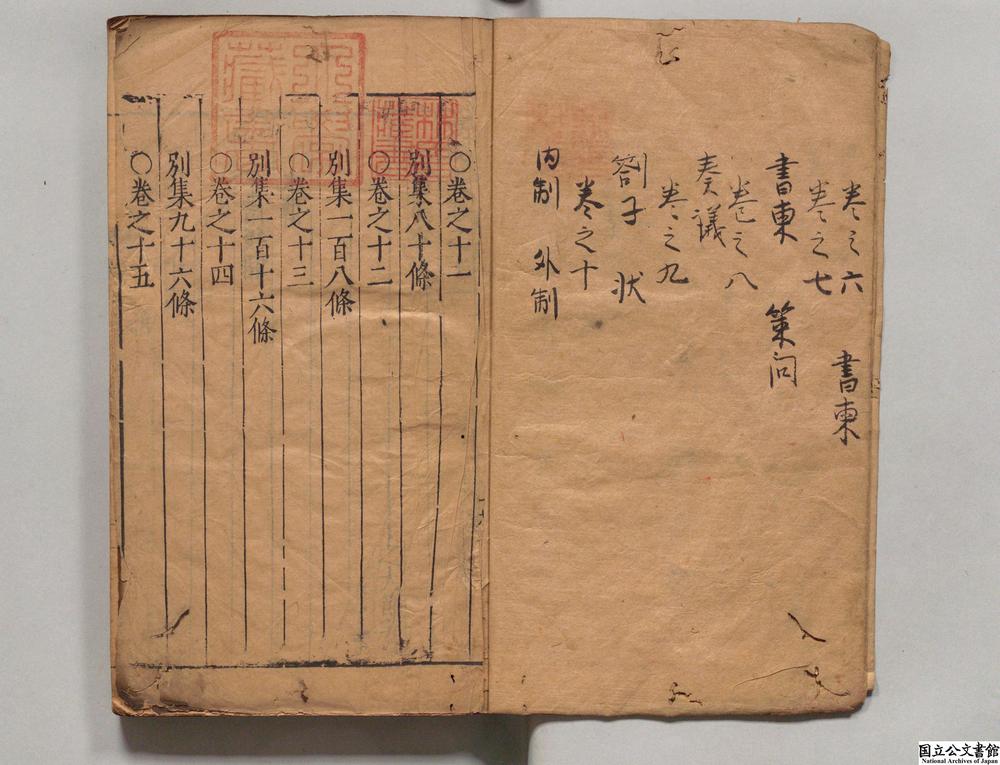 卷之六 書柬
卷之七
書柬 策问
卷之八
奏議
卷之九
劄子 狀
卷之十
内制 外制
○卷之十一
別集八十條
○卷之十二
別集一百八條
○卷之十三
別集一百十六條
○卷之十四
別集九十六條
○卷之十五
国立公文書館
National Archives of Japan